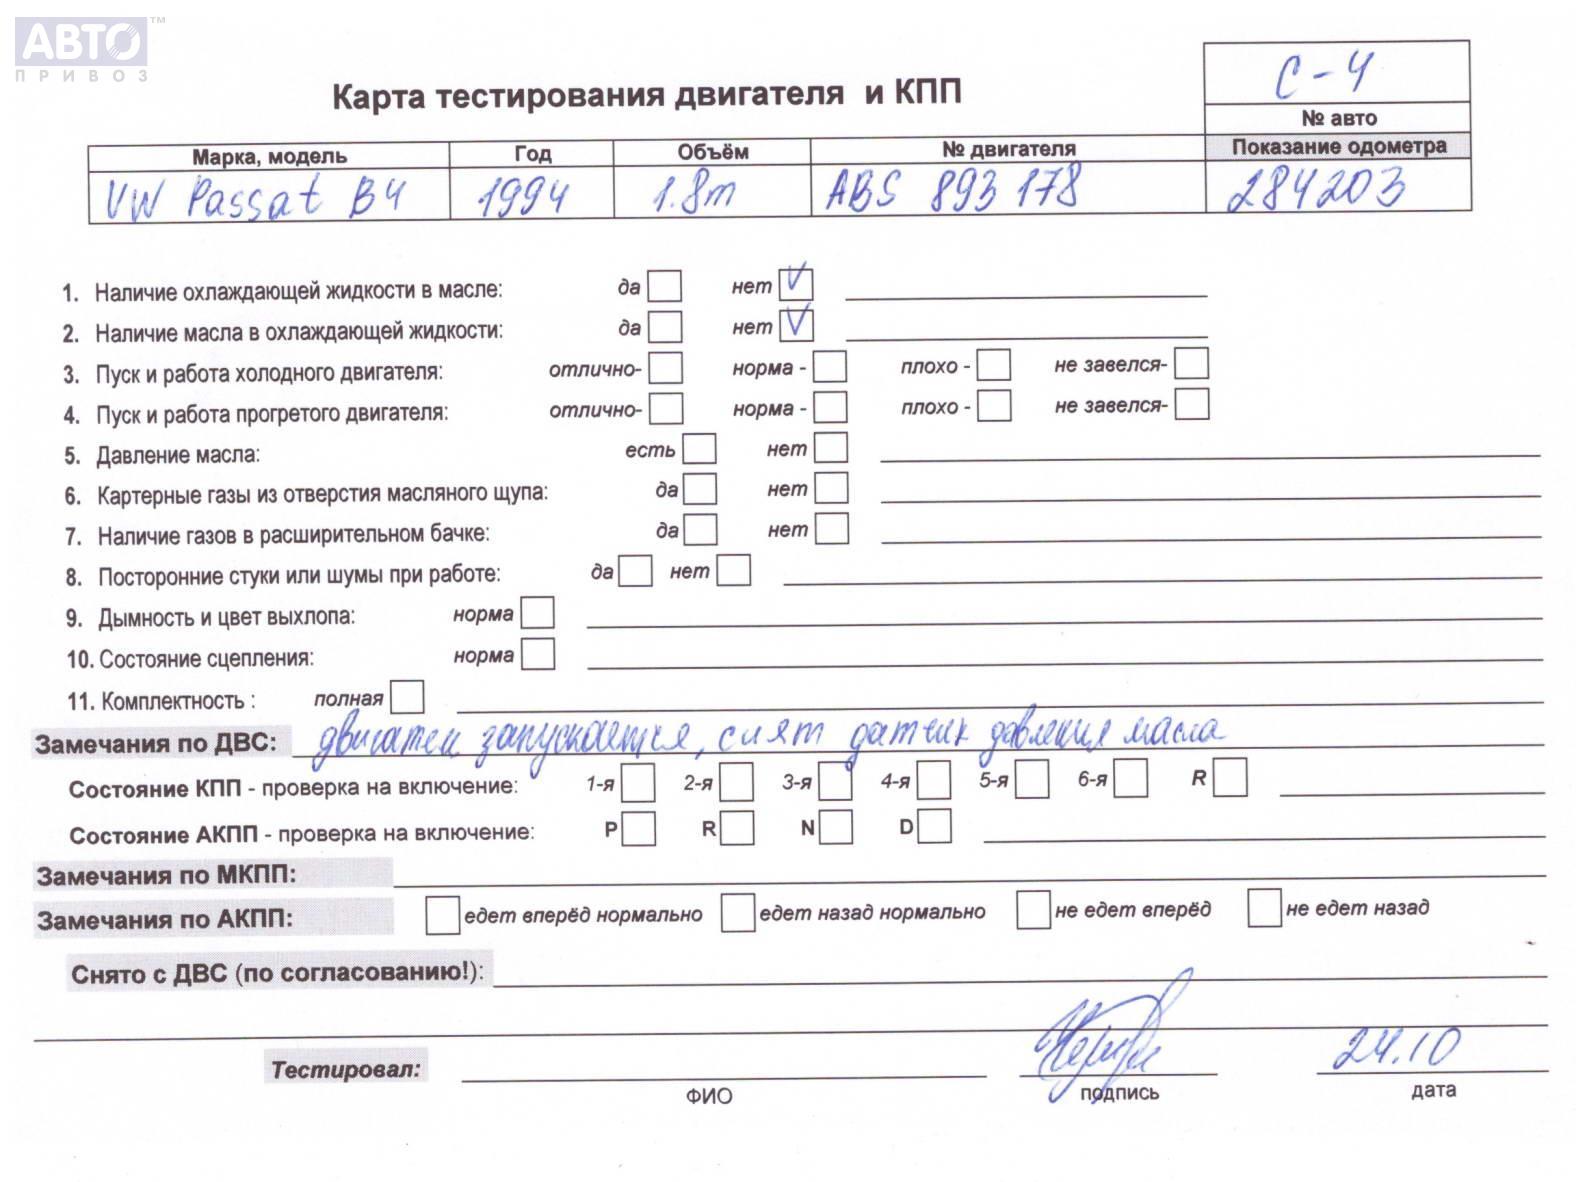 АВТО™
ПРИВОЗ
Карта тестирования двигателя и КПП
С-4
№ авто
Марка, модель Год Объём № двигателя Показание одометра
VW Passat B4 1994 1.8m ABS 893178 284203
1. Наличие охлаждающей жидкости в масле: да нет V
2. Наличие масла в охлаждающей жидкости: да нет V
3. Пуск и работа холодного двигателя: отлично- норма - плохо - не завелся-
4. Пуск и работа прогретого двигателя: отлично- норма - плохо - не завелся-
5. Давление масла: есть нет
6. Картерные газы из отверстия масляного щупа: да нет
7. Наличие газов в расширительном бачке: да нет
8. Посторонние стуки или шумы при работе: да нет
9. Дымность и цвет выхлопа: норма
10. Состояние сцепления: норма
11. Комплектность : полная
Замечания по ДВС: двигатель запускается, снят датчик давления масла
Состояние КПП - проверка на включение: 1-я 2-я 3-я 4-я 5-я 6-я R
Состояние АКПП - проверка на включение: P R N D
Замечания по МКПП:
Замечания по АКПП: едет вперёд нормально едет назад нормально не едет вперёд не едет назад
Снято с ДВС (по согласованию!):
Тестировал: 24.10
ФИО подпись дата